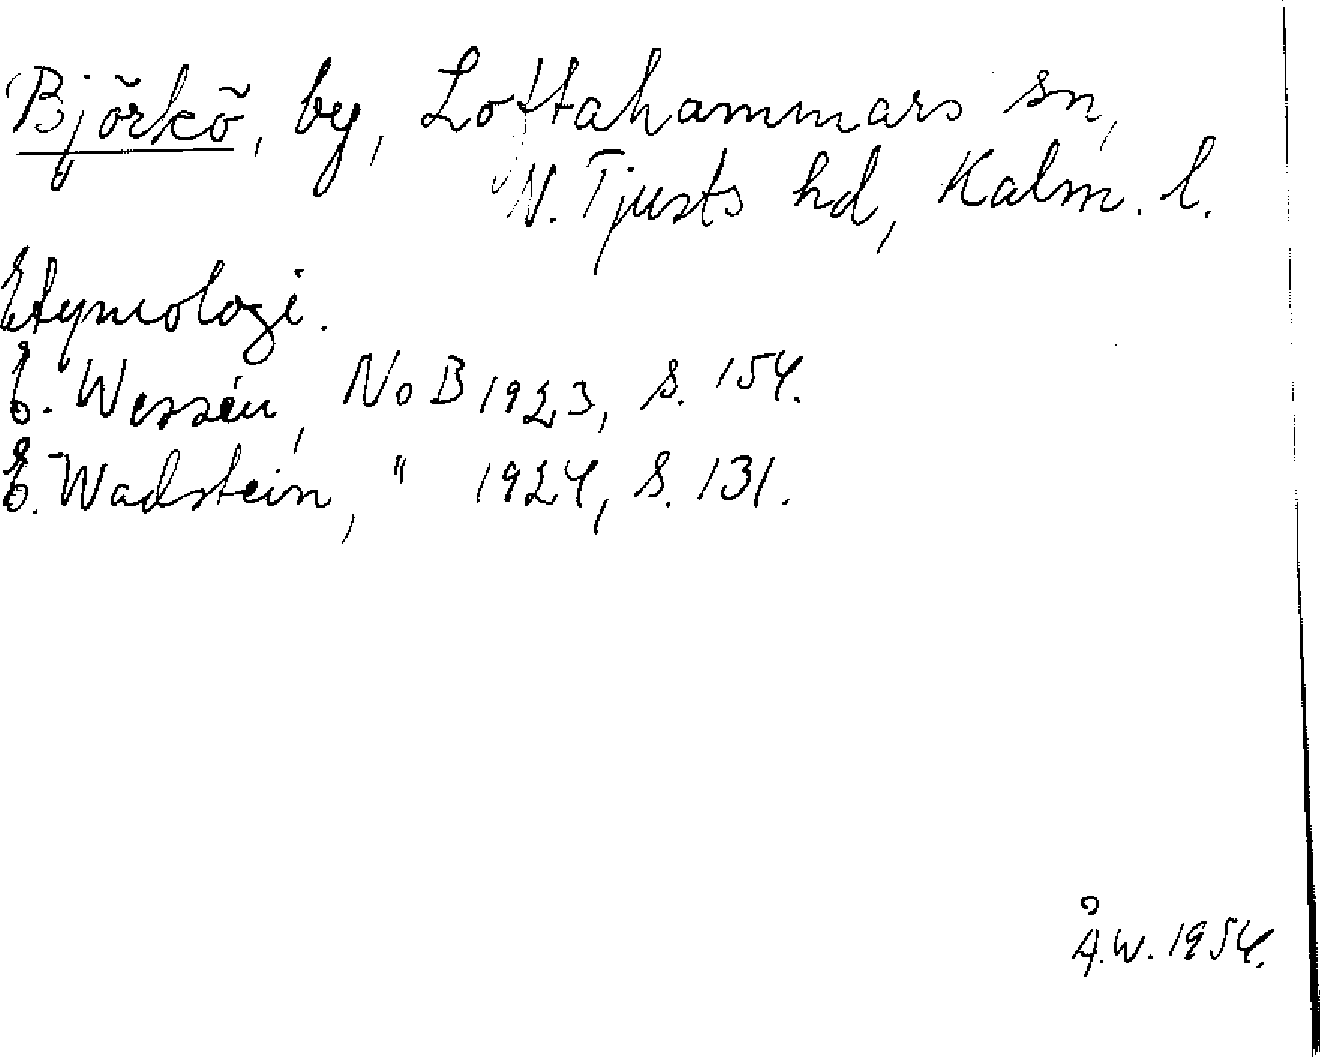 Björkö, by, Loftahammars sn,
N. Tjusts hd, Kalm. l.
Etymologi.
E. Wessén, NoB 1923, s. 154.
E. Wadstein, " 1924, s. 131.
Å.W. 1954.